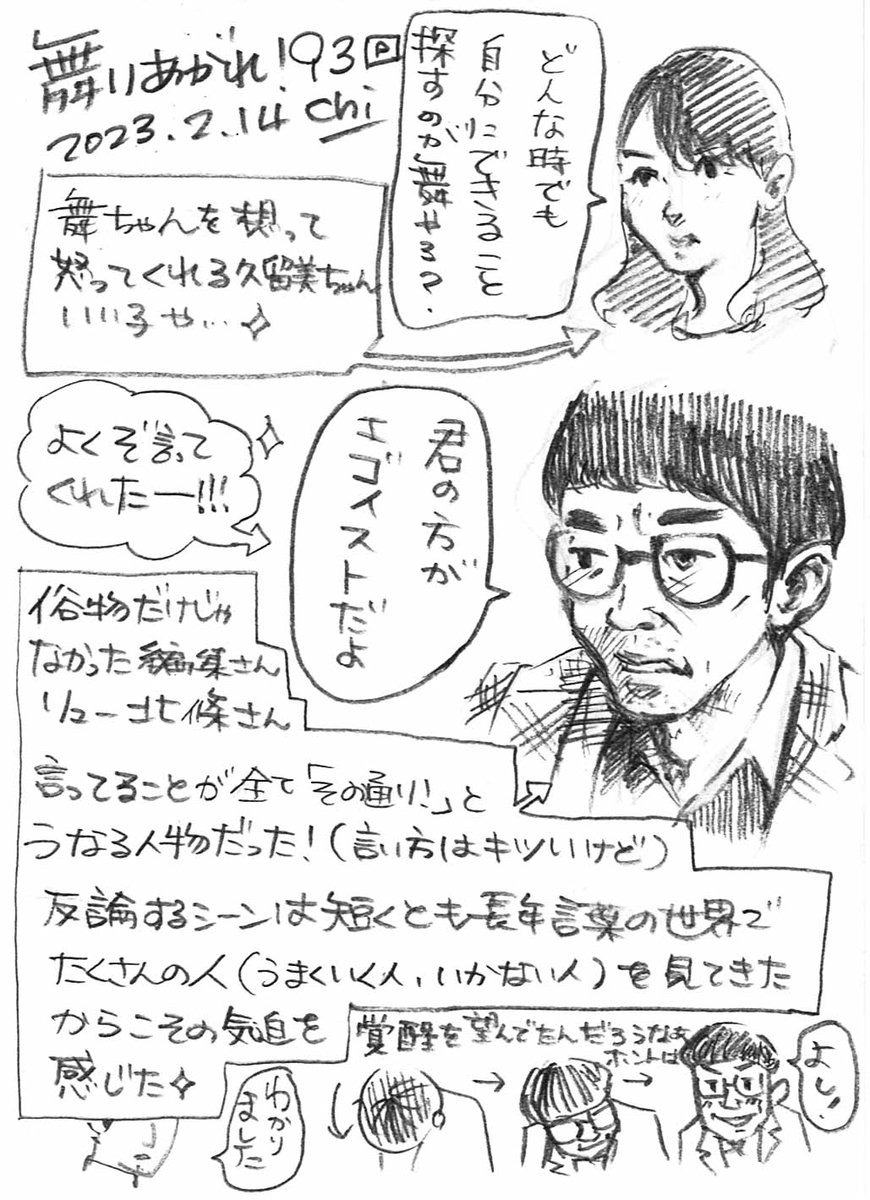 舞いあがれ!93回
2023.2.14 chi
どんな時でも
自分にできること
探すのが舞やろ?
舞ちゃんを想って
怒ってくれる久留美ちゃん
いい子や…
よくぞ言って
くれたー!!!
君の方が
エゴイストだよ
俗物だけじゃ
なかった編集さん
リュー北條さん
言ってることが全て「その通り!」と
うなる人物だった!(言い方はキツいけど)
反論するシーンは短くとも長年言葉の世界で
たくさんの人(うまくいく人、いかない人)を見てきた
からこその気迫を
感じた
覚醒を望んでたんだろうなぁ
ホントは
よし!
わかり
ました